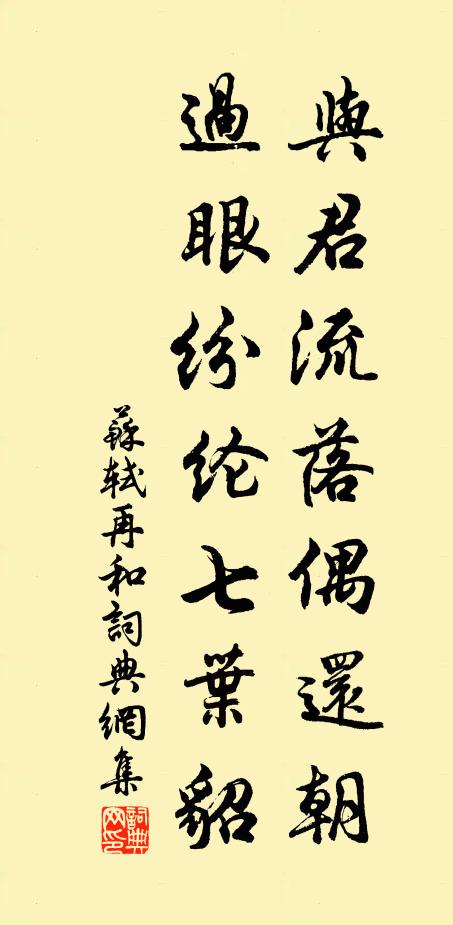 與君流落偶還朝
過眼紛纶七葉貂
蘇軾再和詞典網集
詞典網印